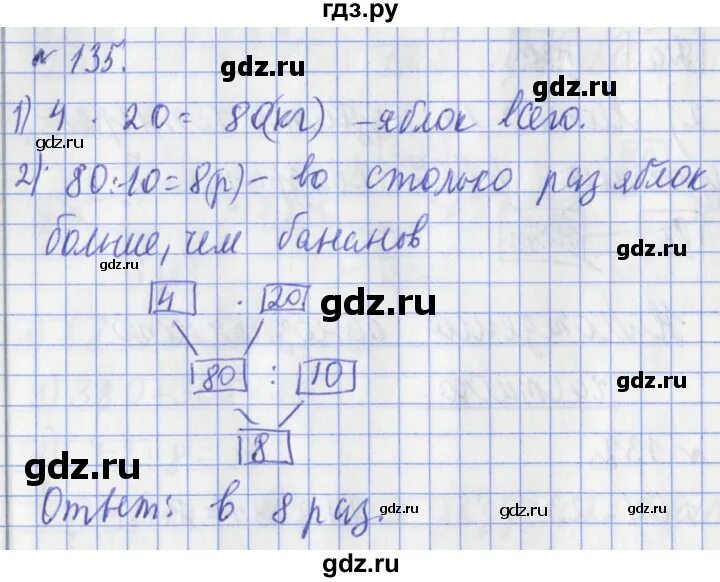 гдз.ру
№ 135.
gdz.ru
gdz.ru
1) 4 · 20 = 80(кг) – яблок всего.
gdz.ru
2) 80:10=8(р) – во столько раз яблок
больше, чем бананов
gdz.ru
gdz.ru
4 · 20
gdz.ru
80 : 10
gdz.ru
8
gdz.ru
Ответ: в 8 раз.
gdz.ru
gdz.ru
gdz.ru
gdz.ru